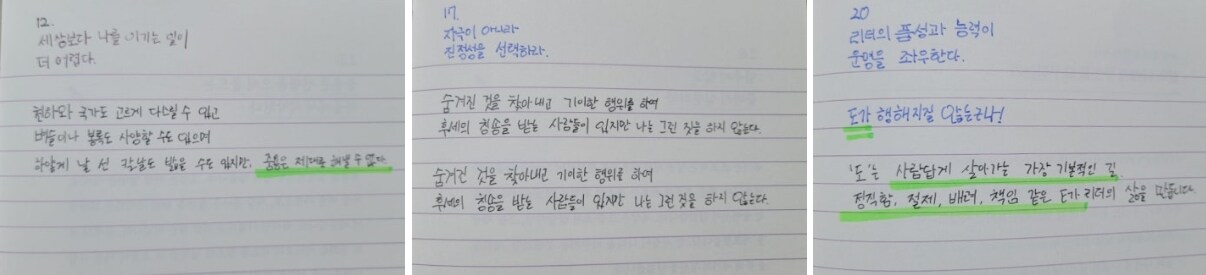 12.
세상보다 나를 이기는 일이
더 어렵다.
천하와 국가도 고르게 다스릴 수 있고
벼슬이나 봉록도 사양할 수도 있으며
하얗게 날 선 칼날도 밟을 수도 있지만, 중용은 제대로 해낼 수 없다.
17.
자극이 아니라
진정성을 선택하라.
숨겨진 것을 찾아내고 기이한 행위를 하여
후세의 칭송을 받는 사람들이 있지만 나는 그런 짓을 하지 않는다.
숨겨진 것을 찾아내고 기이한 행위를 하여
후세의 칭송을 받는 사람들이 있지만 나는 그런 것을 하지 않는다.
20
리더의 품성과 능력이
운명을 좌우한다.
도가 행해지질 않는구나!
'도'는 사람답게 살아가는 가장 기본적인 길.
정직함, 절제, 배려, 책임 같은 도가 리더의 삶을 만듭니다.